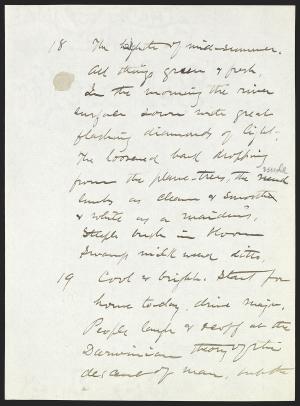 18 The height of mid-summer.
All things green & fresh.
In the morning the river
surface sown with great
flashing diamonds of light.
The loosened bark dropping
from the plane-trees, the nude
limbs as clean & smooth
& white as a maiden's.
Steeple bush in bloom
Swamp milk weed ditto.
19 Cool & bright. Start for
home to-day, drive
People laugh & scoff at the
Darwinian theory of the
descent of man,